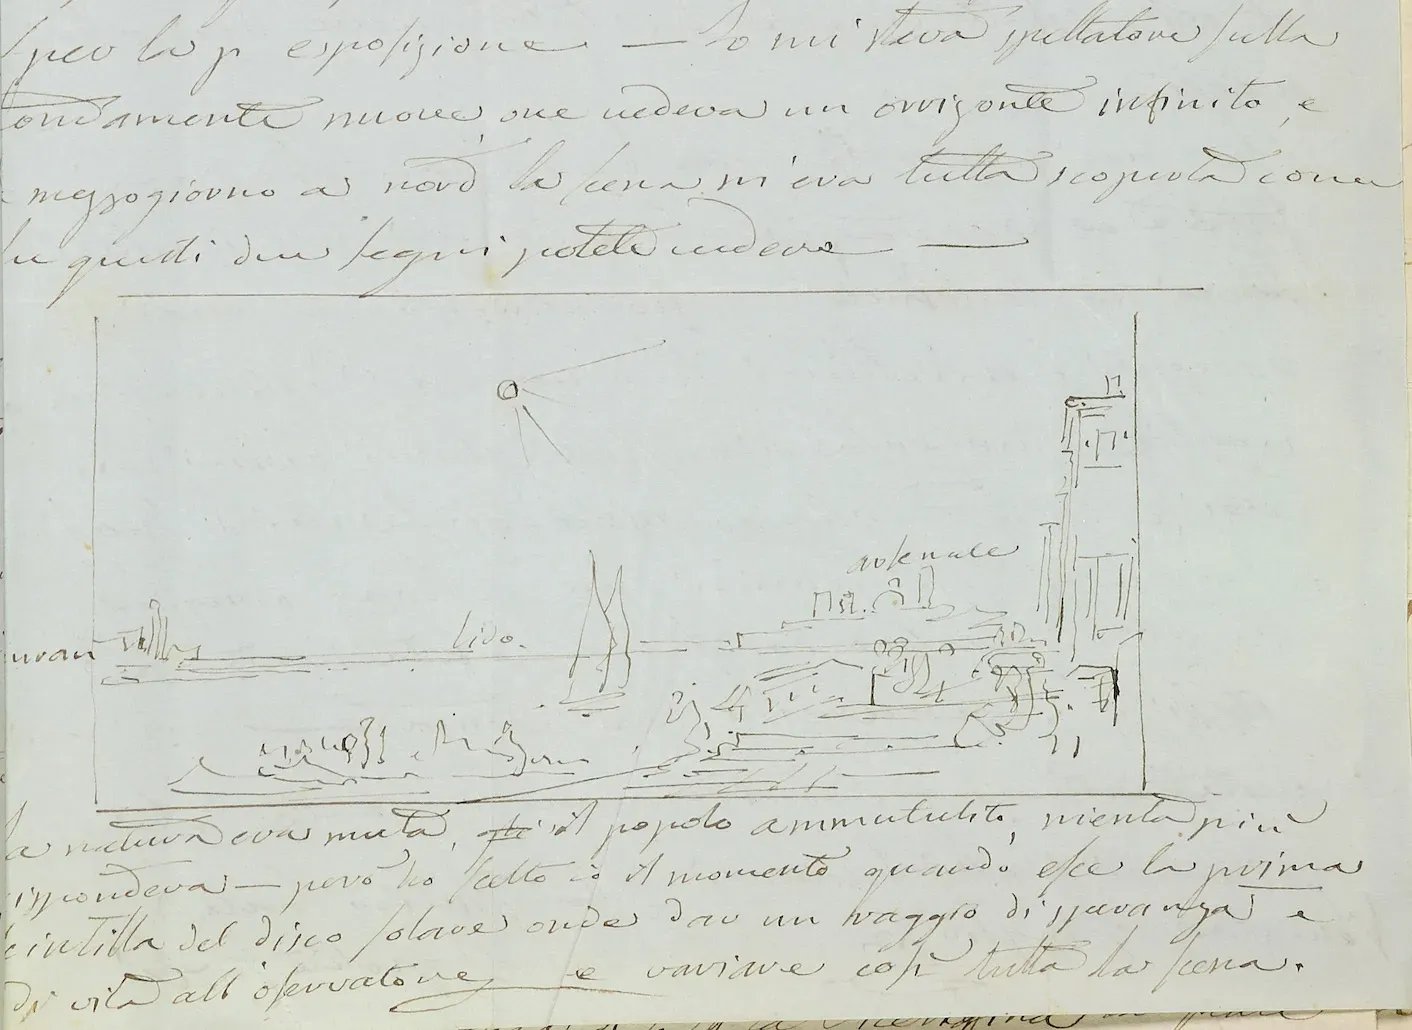 per la p esposizione — Io mi steva spettatore sulla
fondamente nuove, ove vedeva un orrizonte infinito, e
mezzogiorno a nord la scena m'era tutta scoperta come
questi due segni potete vedere —
arsenale
lido.
muran
la natura era muta, il popolo ammutulito, niente più
rispondeva — però ho scelto io il momento quando esce la prima
scintilla del disco solare onde dar un raggio di speranza e
di vita all'osservatore e variare così tutta la scena.